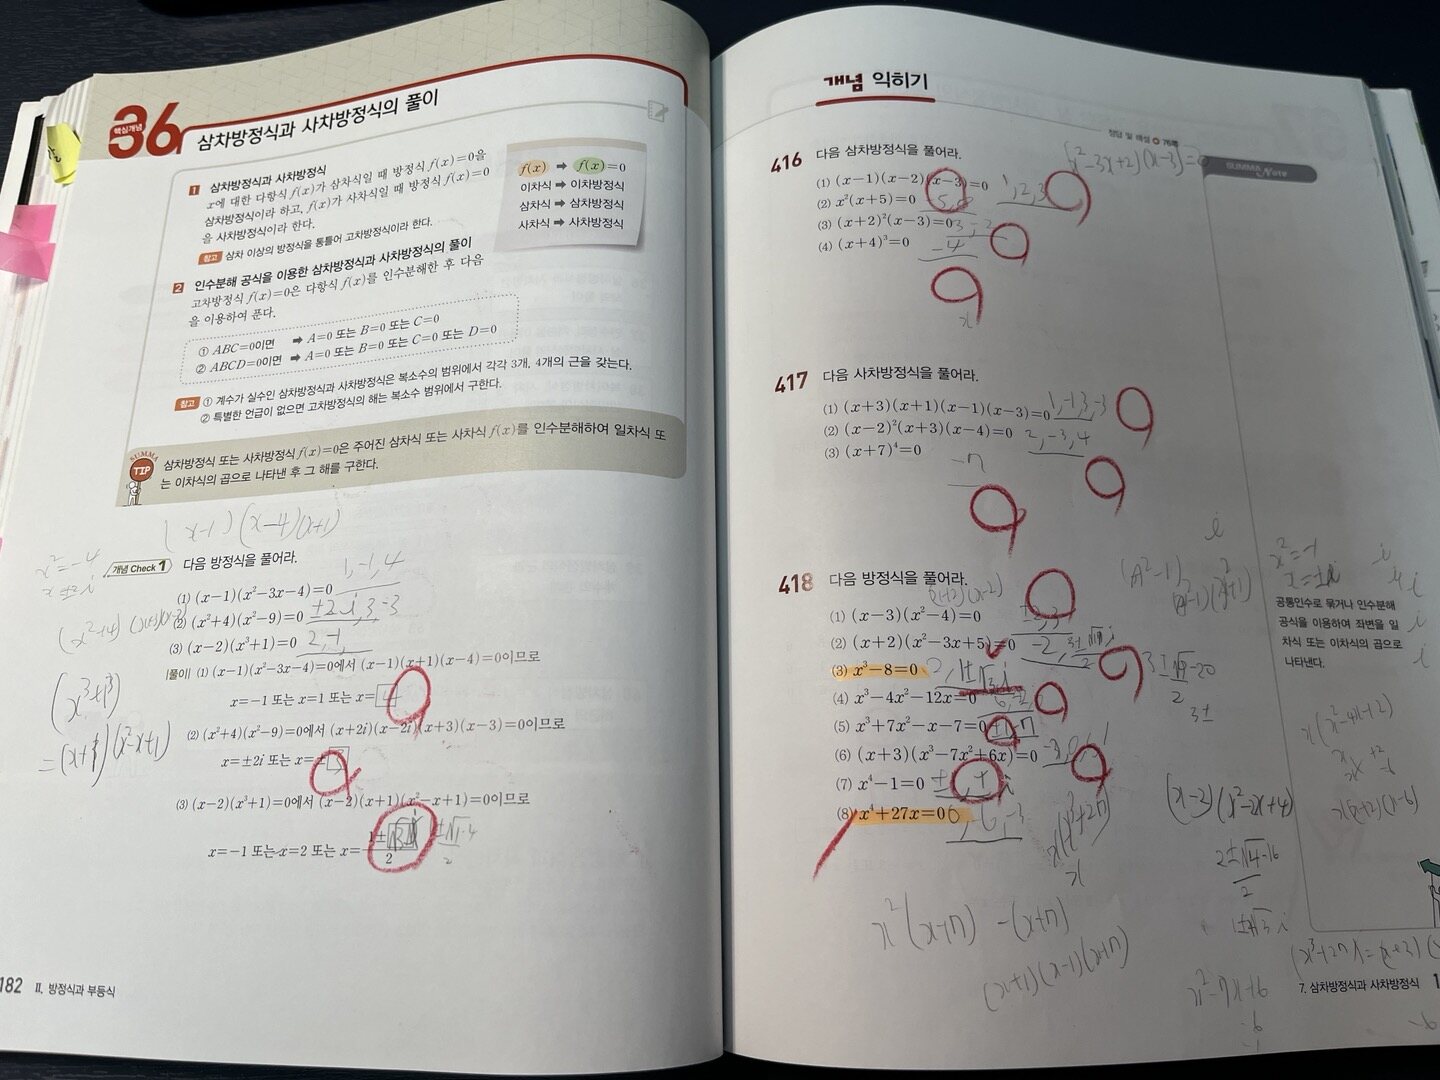 핵심개념 36 삼차방정식과 사차방정식의 풀이
1 삼차방정식과 사차방정식
x에 대한 다항식 f(x)가 삼차식일 때 방정식 f(x)=0을
삼차방정식이라 하고, f(x)가 사차식일 때 방정식 f(x)=0
을 사차방정식이라 한다.
참고 삼차 이상의 방정식을 통틀어 고차방정식이라 한다.
f(x) ➡ f(x)=0
이차식 ➡ 이차방정식
삼차식 ➡ 삼차방정식
사차식 ➡ 사차방정식
2 인수분해 공식을 이용한 삼차방정식과 사차방정식의 풀이
고차방정식 f(x)=0은 다항식 f(x)를 인수분해한 후 다음
을 이용하여 푼다.
① ABC=0이면 ➡ A=0 또는 B=0 또는 C=0
② ABCD=0이면 ➡ A=0 또는 B=0 또는 C=0 또는 D=0
참고 ① 계수가 실수인 삼차방정식과 사차방정식은 복소수의 범위에서 각각 3개, 4개의 근을 갖는다.
② 특별한 언급이 없으면 고차방정식의 해는 복소수 범위에서 구한다.
SUMMA TIP
삼차방정식 또는 사차방정식 f(x)=0은 주어진 삼차식 또는 사차식 f(x)를 인수분해하여 일차식 또
는 이차식의 곱으로 나타낸 후 그 해를 구한다.
(x-1)(x-4)(x+1)
x²=-4
x±2i
개념 Check 1 다음 방정식을 풀어라.
(1) (x-1)(x²-3x-4)=0 1, -1, 4
(2) (x²+4)(x²-9)=0 ±2i, 3, -3
(3) (x-2)(x³+1)=0 2, -1,
|풀이| (1) (x-1)(x²-3x-4)=0에서 (x-1)(x+1)(x-4)=0이므로
x=-1 또는 x=1 또는 x=4
(2) (x²+4)(x²-9)=0에서 (x+2i)(x-2i)(x+3)(x-3)=0이므로
x=±2i 또는 x=±3
(3) (x-2)(x³+1)=0에서 (x-2)(x+1)(x²-x+1)=0이므로
x=-1 또는 x=2 또는 x=
(x³+1³)
=(x+1)(x²-x+1)
182 II. 방정식과 부등식
개념 익히기
정답 및 해설 76쪽
SUMMA NOTE
416 다음 삼차방정식을 풀어라.
(x²-3x+2)(x-3)=0
(1) (x-1)(x-2)(x-3)=0 1, 2, 3
(2) x²(x+5)=0
(3) (x+2)²(x-3)=0 3, -2
(4) (x+4)³=0 -4
417 다음 사차방정식을 풀어라.
(1) (x+3)(x+1)(x-1)(x-3)=0 1, -1, 3, -3
(2) (x-2)²(x+3)(x-4)=0 2, -3, 4
(3) (x+7)⁴=0 -7
418 다음 방정식을 풀어라.
(1) (x-3)(x²-4)=0
(2) (x+2)(x²-3x+5)=0
(3) x³-8=0
(4) x³-4x²-12x=0
(5) x³+7x²-x-7=0
(6) (x+3)(x³-7x²+6x)=0
(7) x⁴-1=0
(8) x⁴+27x=0
x²=-1
x=±i
공통인수로 묶거나 인수분해
공식을 이용하여 좌변을 일
차식 또는 이차식의 곱으로
나타낸다.
x(x²-4x-12)
x(x+2)(x-6)
(x-2)(x²-2x+4)
x²(x+7) -(x+7)
(x+1)(x-1)(x+7)
x²-7x+6
7. 삼차방정식과 사차방정식